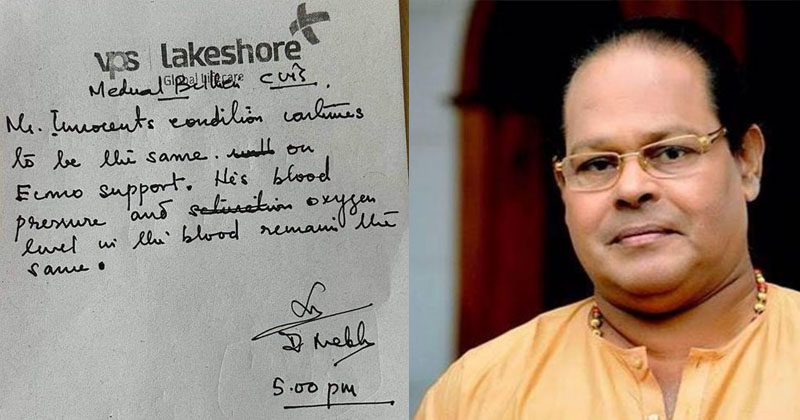 vps lakeshore
Global Lifecare
Medical Bulletin
Mr. Innocent's condition continues
to be the same. on
Ecmo support. His blood
pressure and saturation oxygen
level in the blood remain the
same.
5.00 pm